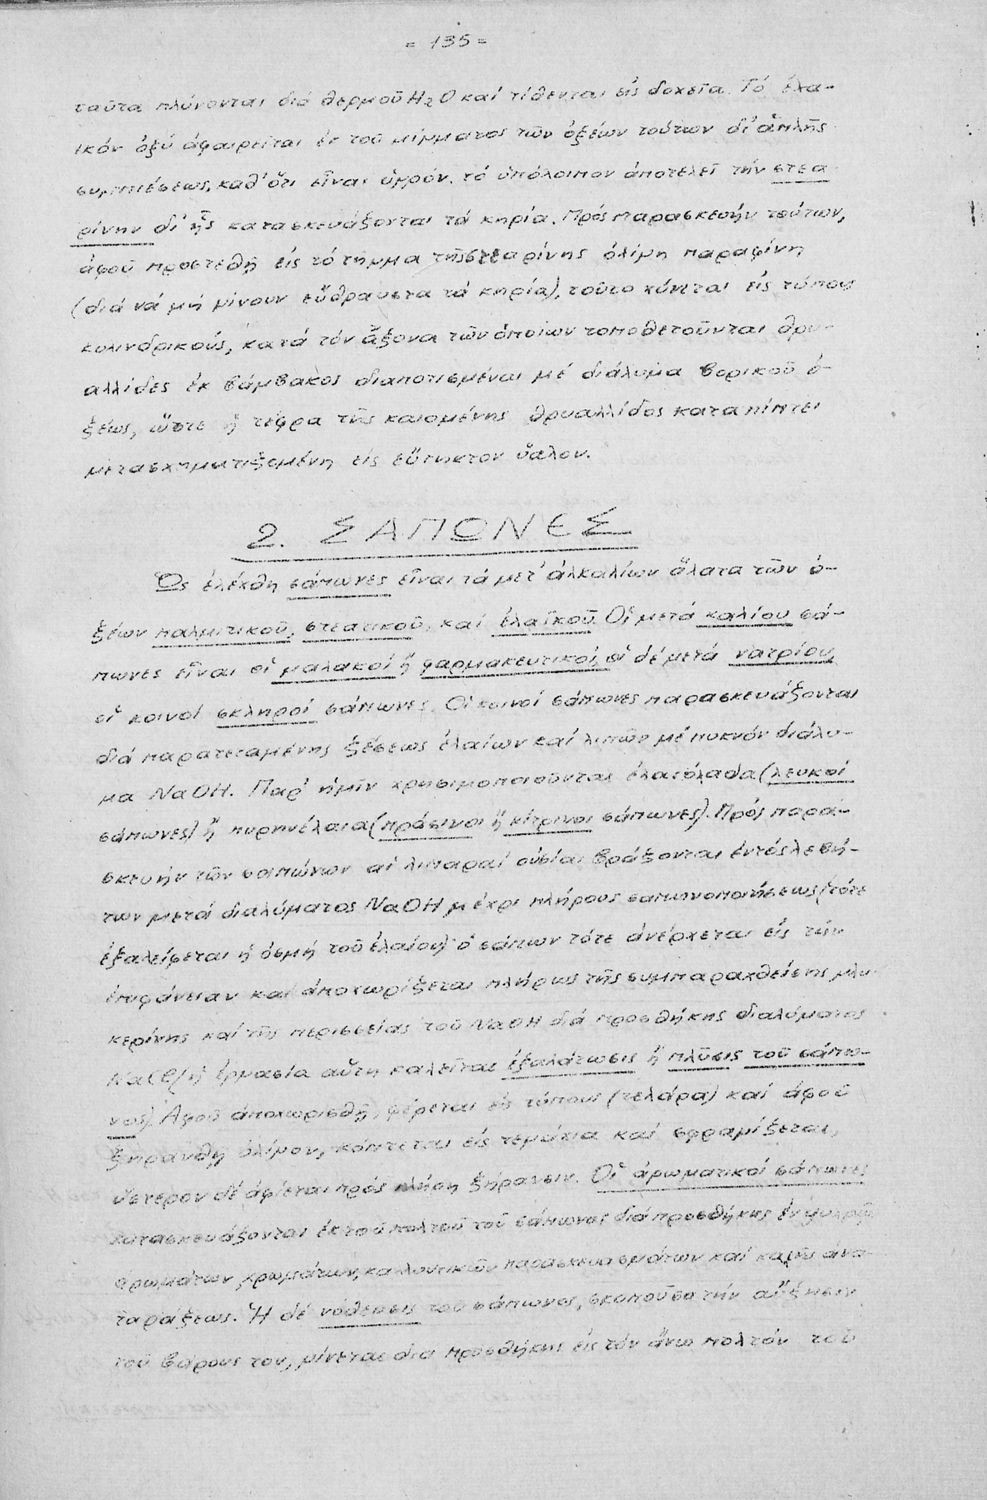 = 135 =
ταῦτα πλύνονται διά θερμοῦ H₂O καί τίθενται εἰς δοχεῖα. Τό ἐλα-
ικόν ὀξύ ἀφαιρεῖται ἐκ τοῦ μίγματος τῶν ὀξέων τούτων δι' ἁπλῆς
συμπιέσεως, καθ' ὅτι εἶναι ὑγρόν. τό ὑπόλοιπον ἀποτελεῖ τήν στεα
ρίνην δι' ἧς κατασκευάζονται τά κηρία. Πρός παρασκευήν τούτων,
ἀφοῦ προστεθῇ εἰς τό τῆγμα τῆς στεαρίνης ὀλίγη παραφίνη
(διά νά μή γίνουν εὔθραυστα τά κηρία), τοῦτο χύνεται εἰς τύπους
κυλινδρικούς, κατά τόν ἄξονα τῶν ὁποίων τοποθετοῦνται θρυ-
αλλίδες ἐκ βάμβακος διαποτισμέναι μέ διάλυμα βορικοῦ ὀ-
ξέως, ὥστε ἡ τέφρα τῆς καιομένης θρυαλλίδος καταπίπτει
μετασχηματιζομένη εἰς εὔτηκτον ὕαλον.
2. ΣΑΠΩΝΕΣ
Ὡς ἐλέχθη σάπωνες εἶναι τά μετ' ἀλκαλίων ἅλατα τῶν ὀ-
ξέων παλμιτικοῦ, στεατικοῦ, καί ἐλαϊκοῦ. Οἱ μετά καλίου σά-
πωνες εἶναι οἱ μαλακοί ἤ φαρμακευτικοί, οἱ δέ μετά νατρίου,
οἱ κοινοί σκληροί σάπωνες. Οἱ κοινοί σάπωνες παρασκευάζονται
διά παρατεταμένης ζέσεως ἐλαίων καί λιπῶν μέ πυκνόν διάλυ-
μα NaOH. Παρ' ἡμῖν χρησιμοποιοῦνται ἐλαιόλαδα (λευκοί
σάπωνες) ἤ πυρηνέλαια (πράσινοι ἤ κίτρινοι σάπωνες). Πρός παρα-
σκευήν τῶν σαπώνων αἱ λιπαραί οὐσίαι βράζονται ἐντός λεβή-
των μετά διαλύματος NaOH μέχρι πλήρους σαπωνοποιήσεως (τότε
ἐξαλείφεται ἡ ὀσμή τοῦ ἐλαίου) ὁ σάπων τότε ἀνέρχεται εἰς τήν
ἐπιφάνειαν καί ἀποχωρίζεται πλήρως τῆς συμπαραχθείσης γλυ-
κερίνης καί τῆς περισσείας τοῦ NaOH διά προσθήκης διαλύματος
NaCl (ἡ ἐργασία αὕτη καλεῖται ἐξαλάτωσις ἤ πλῦσις τοῦ σάπω-
νος). Ἀφοῦ ἀποχωρισθῇ, φέρεται εἰς τύπους (τελάρα) καί ἀφοῦ
ξηρανθῇ ὀλίγον, κόπτεται εἰς τεμάχια καί σφραγίζεται,
ὕστερον δέ ἀφίεται πρός πλήρη ξήρανσιν. Οἱ ἀρωματικοί σάπωνες
κατασκευάζονται ἐκ τοῦ πολτοῦ τοῦ σάπωνος διά προσθήκης ἐν ψυχρῷ
ἀρωμάτων, χρωμάτων, καλλυντικῶν παρασκευασμάτων καί καλῆς ἀνα-
ταράξεως. Ἡ δέ νόθευσις τοῦ σάπωνος, σκοποῦσα τήν αὔξησιν
τοῦ βάρους του, γίνεται διά προσθήκης εἰς τόν ἄνω πολτόν τοῦ